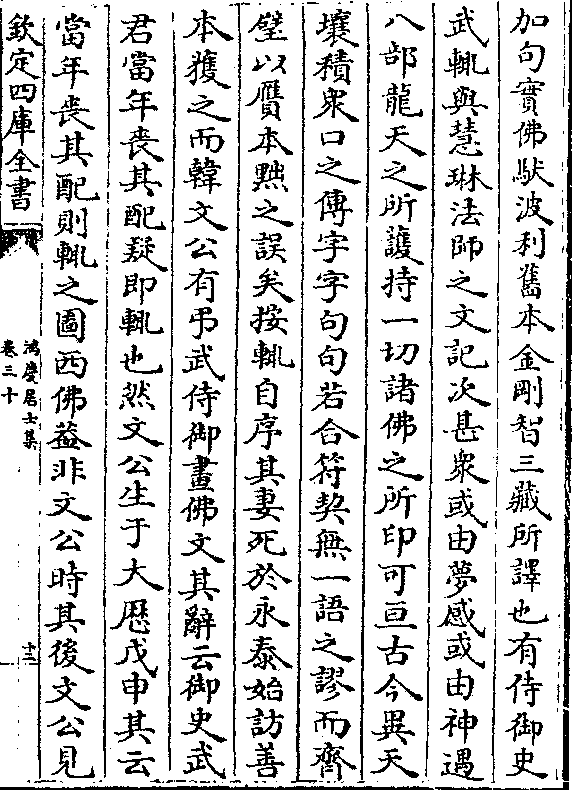 加句實佛馱波利舊本金剛智三藏所譯也有侍御史
武輒與慧琳法師之文記次甚衆或由夢感或由神遇
八部龍天之所護持一切諸佛之所印可亘古今異天
壤積衆口之傳字字句句若合符契無一語之謬而齊
璧以贋本黙之誤矣按輒自序其妻死於永泰始訪善
本獲之而韓文公有弔武侍御畫佛文其辭云御史武
君當年喪其配疑即輒也然文公生于大歴戊申其云
當年喪其配則輒之圖西佛葢非文公時其後文公見
欽定四庫全書
鴻慶居士集
卷三十
十三